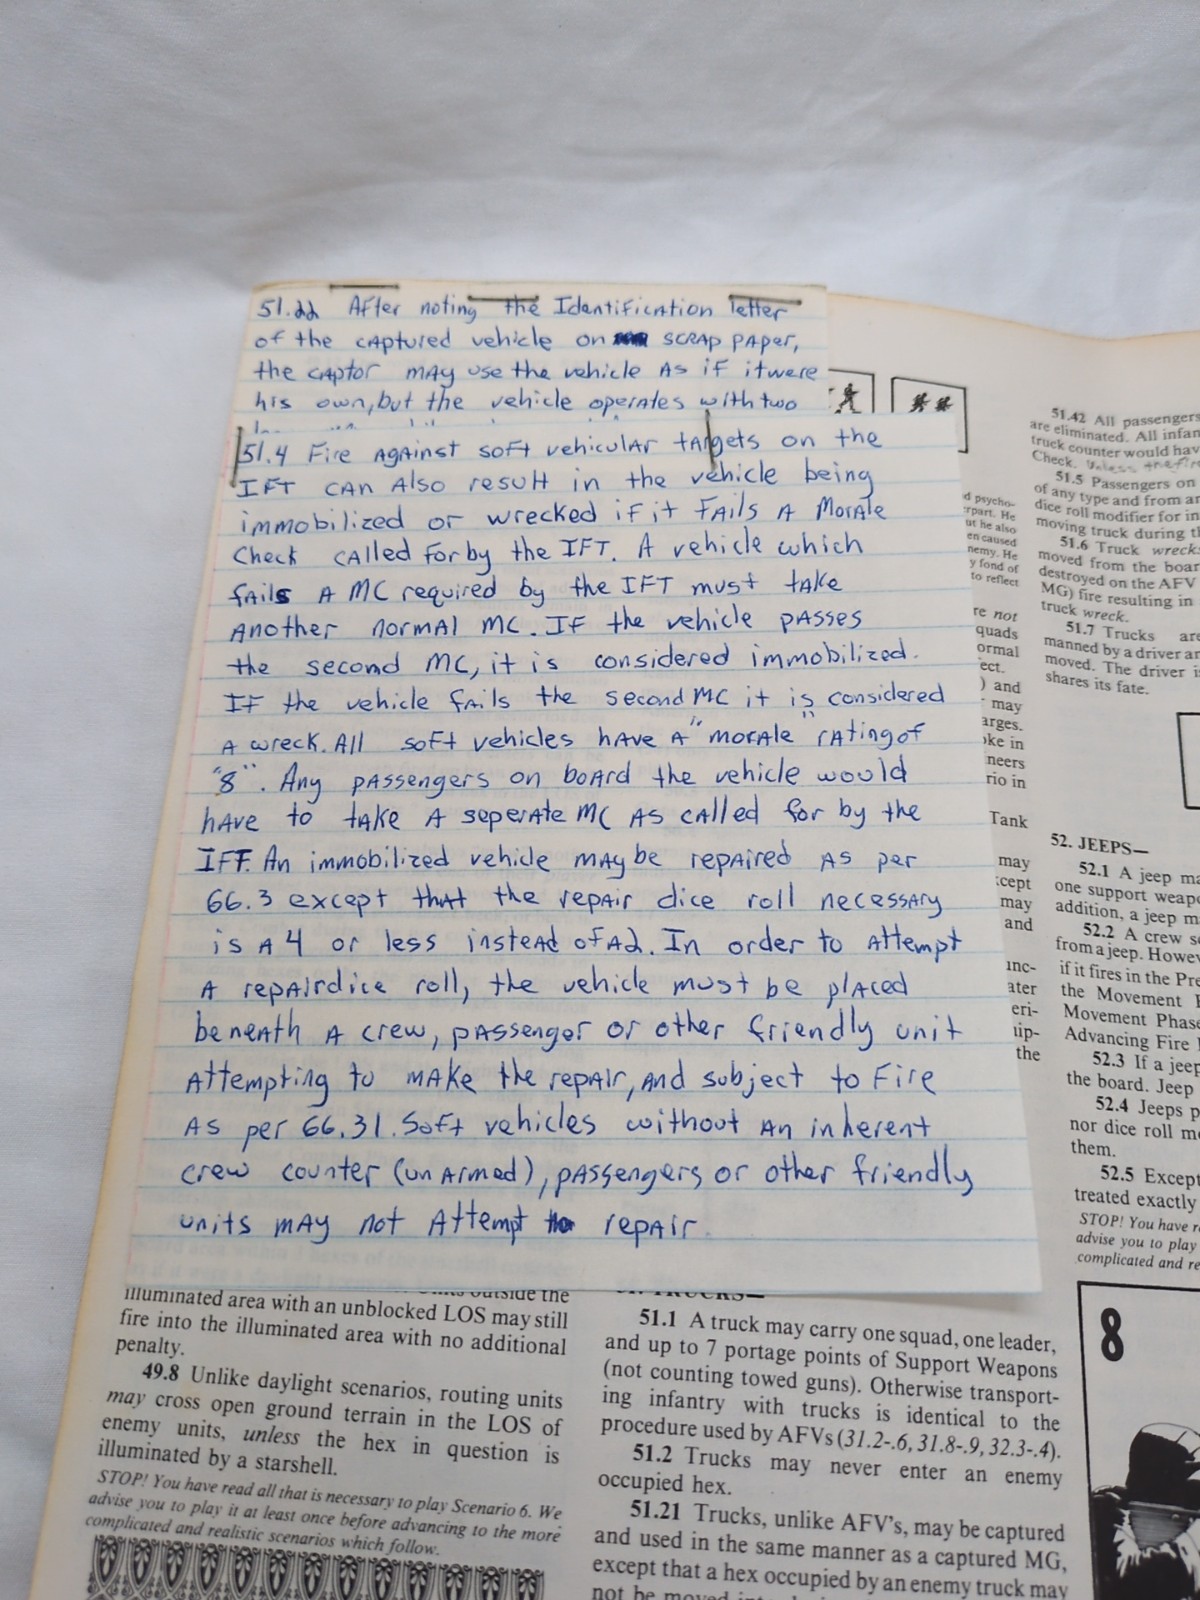 51.22 After noting the Identification letter
of the captured vehicle on scrap paper,
the captor may use the vehicle as if it were
his own, but the vehicle operates with two
51.4 Fire against soft vehicular targets on the
IFT can also result in the vehicle being
immobilized or wrecked if it fails a Morale
Check called for by the IFT. A vehicle which
fails a MC required by the IFT must take
another normal MC. If the vehicle passes
the second MC, it is considered immobilized.
If the vehicle fails the second MC it is considered
a wreck. All soft vehicles have a "morale" rating of
"8". Any passengers on board the vehicle would
have to take a seperate MC as called for by the
IFT. An immobilized vehicle may be repaired as per
66.3 except that the repair dice roll necessary
is a 4 or less instead of a 2. In order to attempt
a repair dice roll, the vehicle must be placed
beneath a crew, passenger or other friendly unit
attempting to make the repair, and subject to Fire
as per 66.31. Soft vehicles without an inherent
crew counter (unarmed), passengers or other friendly
units may not attempt repair.
illuminated area with an unblocked LOS may still
fire into the illuminated area with no additional
penalty.
49.8 Unlike daylight scenarios, routing units
may cross open ground terrain in the LOS of
enemy units, unless the hex in question is
illuminated by a starshell.
STOP! You have read all that is necessary to play Scenario 6. We
advise you to play it at least once before advancing to the more
complicated and realistic scenarios which follow.
51.1 A truck may carry one squad, one leader,
and up to 7 portage points of Support Weapons
(not counting towed guns). Otherwise transport-
ing infantry with trucks is identical to the
procedure used by AFVs (31.2-.6, 31.8-.9, 32.3-.4).
51.2 Trucks may never enter an enemy
occupied hex.
51.21 Trucks, unlike AFV's, may be captured
and used in the same manner as a captured MG,
except that a hex occupied by an enemy truck may
not be moved
d psycho-
rpart. He
ut he also
en caused
nemy. He
y fond of
to reflect
re not
quads
ormal
ect.
) and
may
arges.
oke in
neers
rio in
Tank
may
cept
may
and
unc-
ater
eri-
hip-
the
51.42 All passengers
are eliminated. All infan
truck counter would hav
Check.
51.5 Passengers on
of any type and from ar
dice roll modifier for in
moving truck during th
51.6 Truck wreck
moved from the boar
destroyed on the AFV
MG) fire resulting in
truck wreck.
51.7 Trucks are
manned by a driver ar
moved. The driver i
shares its fate.
52. JEEPS—
52.1 A jeep ma
one support weap
addition, a jeep m
52.2 A crew s
from a jeep. Howe
if it fires in the Pre
the Movement
Movement Phase
Advancing Fire
52.3 If a jeep
the board. Jeep
52.4 Jeeps p
nor dice roll m
them.
52.5 Except
treated exactly
STOP! You have r
advise you to play
complicated and re
8